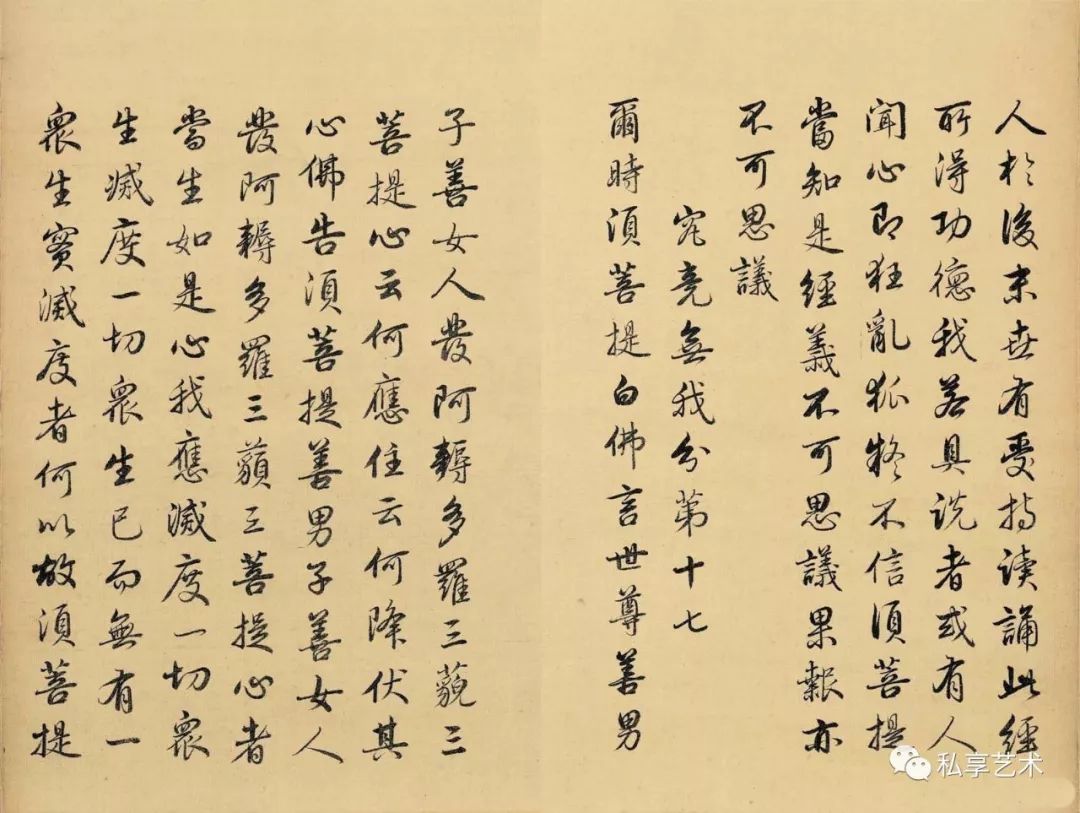 人於後末世有受持读誦此經
所得功德我若具说者或有人
聞心即狂亂狐疑不信須菩提
當知是經義不可思議果報亦
不可思議
究竟無我分第十七
爾時須菩提白佛言世尊善男
子善女人發阿耨多羅三藐三
菩提心云何應住云何降伏其
心佛告須菩提善男子善女人
發阿耨多羅三藐三菩提心者
當生如是心我應滅度一切衆
生滅度一切衆生已而無有一
衆生實滅度者何以故須菩提
私享艺术